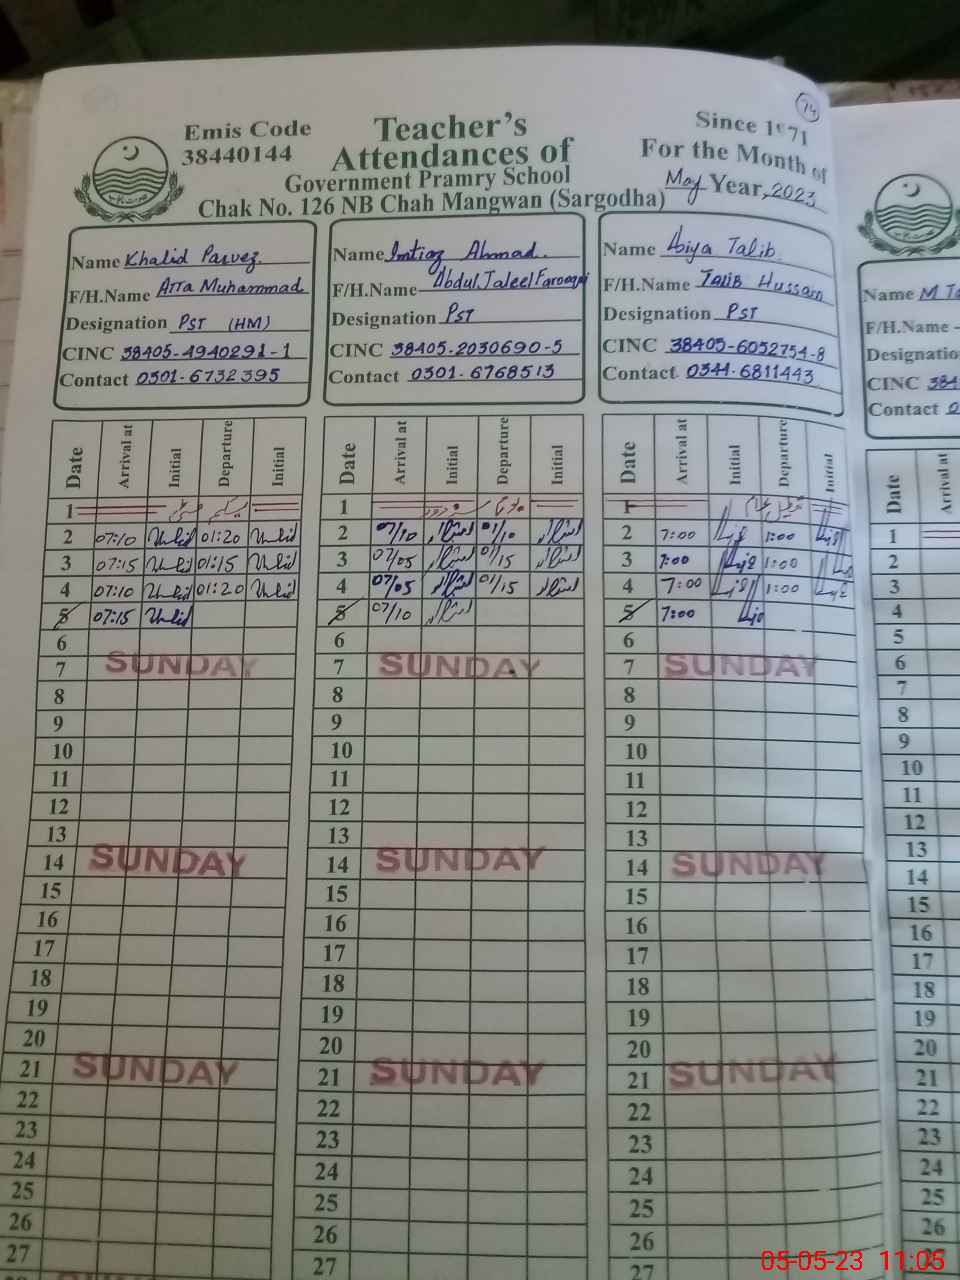 74
Emis Code
38440144
Teacher's
Attendances of
Government Pramry School
Chak No. 126 NB Chah Mangwan (Sargodha)
Since 1971
For the Month of
May Year, 2023
Name Khalid Parvez
F/H.Name Atta Muhammad
Designation PST (HM)
CINC 38405-4940291-1
Contact 0301-6732395
Name Imtiaz Ahmad.
F/H.Name Abdul Jaleel Farooqi
Designation PST
CINC 38405-2030690-5
Contact 0301-6768513
Name Abiya Talib
F/H.Name Talib Hussain
Designation PST
CINC 38405-6052754-8
Contact 0344-6811443
Date Arrival at Initial Departure Initial
1
2 07:10 01:20
3 07:15 01:15
4 07:10 01:20
5 07:15
6
7 SUNDAY
8
9
10
11
12
13
14 SUNDAY
15
16
17
18
19
20
21 SUNDAY
22
23
24
25
26
27
Date Arrival at Initial Departure Initial
1
2 07/10 01/10
3 07/05 01/15
4 07/05 01/15
5 07/10
6
7 SUNDAY
8
9
10
11
12
13
14 SUNDAY
15
16
17
18
19
20
21 SUNDAY
22
23
24
25
26
27
Date Arrival at Initial Departure Initial
1 تعطیل عام
2 7:00 1:00
3 7:00 1:00
4 7:00 1:00
5 7:00
6
7 SUNDAY
8
9
10
11
12
13
14 SUNDAY
15
16
17
18
19
20
21 SUNDAY
22
23
24
25
26
27
Name M
F/H.Name
Designatio
CINC 384
Contact 0
Date Arrival at
1
2
3
4
5
6
7
8
9
10
11
12
13
14
15
16
17
18
19
20
21
22
23
24
25
26
05-05-23 11:05